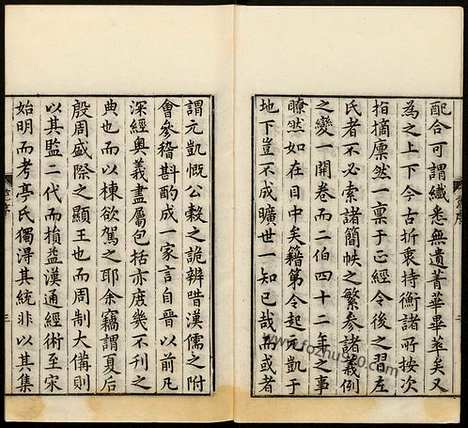 配合可謂纖悉無遺菁華畢萃矣又
為之上下今古折衷持衡諸所按次
指摘廩然一禀于正經令後之習左
氏者不必索諸簡帙之繁參諸義例
之變一開卷而二伯四十二年之事
瞭然如在目中矣籍第令起元凱于
地下豈不成曠世一知已哉而或者
謂元凱慨公穀之詭辨唶漢儒之附
會參稽斟酌成一家言自晉以前凡
深經奧義盡屬包括亦庶幾不刊之
典也而以棟欲駕之耶余竊謂夏后
殷周盛際之顯王也而周制大備則
以其監二代而損益漢通經術至宋
始明而考亭氏獨得其統非以其集
三